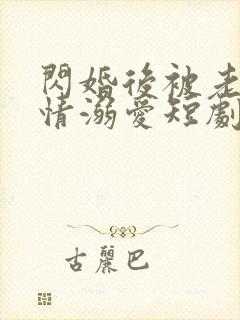 閃婚後被老
情溺愛短劇
古麗巴